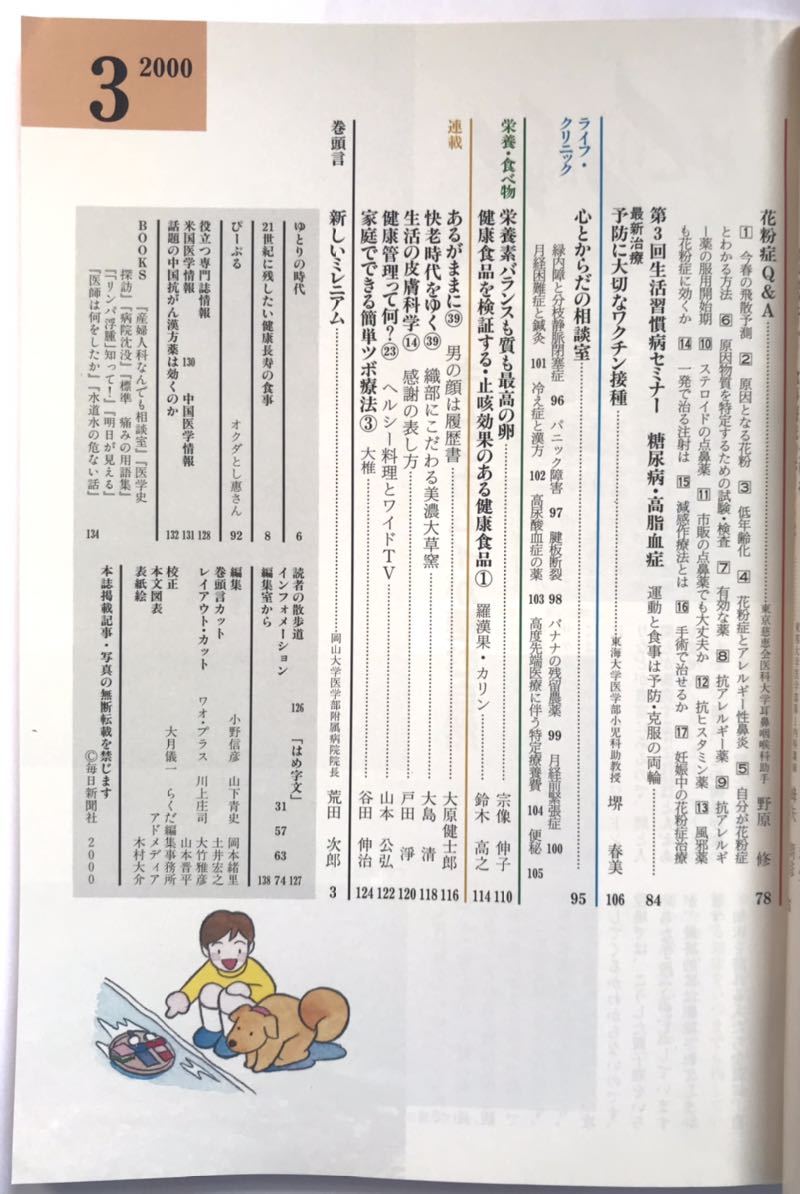 3 2000
花粉症Q&A 東京慈恵会医科大学耳鼻咽喉科助手 野原 修 78
1 今春の飛散予測 2 原因となる花粉 3 低年齢化 4 花粉症とアレルギー性鼻炎 5 自分が花粉症
とわかる方法 6 原因物質を特定するための試験・検査 7 有効な薬 8 抗アレルギー薬 9 抗アレルギ
ー薬の服用開始期 10 ステロイドの点鼻薬 11 市販の点鼻薬でも大丈夫か 12 抗ヒスタミン薬 13 風邪薬
も花粉症に効くか 14 一発で治る注射は 15 減感作療法とは 16 手術で治せるか 17 妊娠中の花粉症治療
第3回生活習慣病セミナー 糖尿病・高脂血症 運動と食事は予防・克服の両輪 84
最新治療
予防に大切なワクチン接種 東海大学医学部小児科助教授 堺 春美 106
ライフ・
クリニック
心とからだの相談室 95
緑内障と分枝静脈閉塞症 96 パニック障害 97 腱板断裂 98 バナナの残留農薬 99 月経前緊張症 100
月経困難症と鍼灸 101 冷え症と漢方 102 高尿酸血症の薬 103 高度先端医療に伴う特定療養費 104 便秘 105
栄養・食べ物
栄養素バランスも質も最高の卵 宗像 伸子 110
健康食品を検証する・止咳効果のある健康食品① 羅漢果・カリン 鈴木 高之 114
連載
あるがままに㊴ 男の顔は履歴書 大原健士郎 116
快老時代をゆく㊴ 織部にこだわる美濃大草窯 大島 清 118
生活の皮膚科学⑭ 感謝の表し方 戸田 淨 120
健康管理って何?㉓ ヘルシー料理とワイドTV 山本 公弘 122
家庭でできる簡単ツボ療法③ 大椎 谷田 伸治 124
巻頭言
新しいミレニアム 岡山大学医学部附属病院院長 荒田 次郎 3
ゆとりの時代 6
21世紀に残したい健康長寿の食事 8
ぴーぷる オクダとし惠さん 92
役立つ専門誌情報 128
米国医学情報 130 中国医学情報 131
話題の中国抗がん漢方薬は効くのか 132
BOOKS 『産婦人科なんでも相談室』『医学史
探訪』『病院沈没』『標準 痛みの用語集』
『リンパ浮腫』知って!』『明日が見える』
『医師は何をしたか』『水道水の危ない話』 134
読者の散歩道 126 「はめ字文」 127
インフォメーション 31 57 63 74
編集室から 138
編集 小野信彦 山下青史 岡本緒里
巻頭言カット 土井宏之
レイアウト・カット ワオ・プラス 川上庄司 大竹雅彦
山本晋平
校正 大月儀一 らくだ編集事務所
本文図表 アドメディア
表紙絵 木村大介
本誌掲載記事・写真の無断転載を禁じます
©毎日新聞社 2000